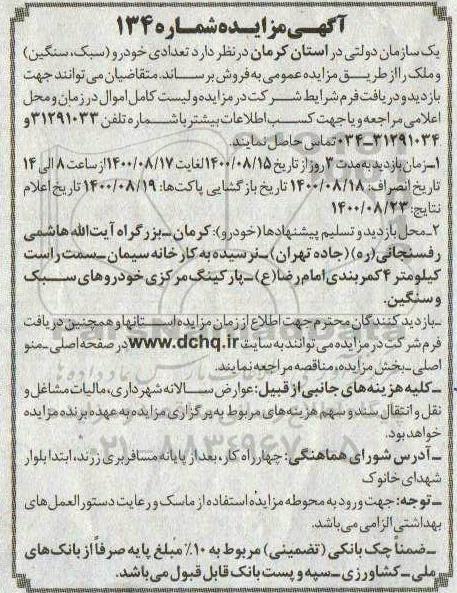 آگهی مزایده شماره ۱۳۴
یک سازمان دولتی در استان کرمان در نظر دارد تعدادی خودرو (سبک، سنگین)
و ملک را از طریق مزایده عمومی به فروش برساند. متقاضیان می توانند جهت
بازدید و دریافت فرم شرایط شرکت در مزایده و لیست کامل اموال در زمان و محل
اعلامی مراجعه و یا جهت کسب اطلاعات بیشتر با شماره تلفن ۳۱۲۹۱۰۳۳ و
۳۱۲۹۱۰۳۴-۰۳۴ تماس حاصل نمایند.
۱-زمان بازدید به مدت ۳ روز از تاریخ ۱۴۰۰/۰۸/۱۵ لغایت ۱۴۰۰/۰۸/۱۷ از ساعت ۸ الی ۱۴
تاریخ انصراف: ۱۴۰۰/۰۸/۱۸ تاریخ بازگشایی پاکت‌ها: ۱۴۰۰/۰۸/۱۹ تاریخ اعلام
نتایج: ۱۴۰۰/۰۸/۲۳
۲-محل بازدید و تسلیم پیشنهادها (خودرو): کرمان - بزرگراه آیت الله هاشمی
رفسنجانی (ره) (جاده تهران) - نرسیده به کارخانه سیمان - سمت راست
کیلومتر ۴ کمربندی امام رضا (ع) - پارکینگ مرکزی خودروهای سبک
و سنگین.
- بازدید کنندگان محترم جهت اطلاع از زمان مزایده استانها و همچنین دریافت
فرم شرکت در مزایده می توانند به سایت www.dchq.ir در صفحه اصلی - منو
اصلی - بخش مزایده، مناقصه مراجعه نمایند.
- کلیه هزینه های جانبی از قبیل: عوارض سالانه شهرداری، مالیات مشاغل و
نقل و انتقال سند و سهم هزینه های مربوط به برگزاری مزایده به عهده برنده مزایده
خواهد بود.
- آدرس شورای هماهنگی: چهارراه کار، بعد از پایانه مسافربری زرند، ابتدا بلوار
شهدای خانوک
- توجه: جهت ورود به محوطه مزایده استفاده از ماسک و رعایت دستورالعمل های
بهداشتی الزامی می باشد.
- ضمناً چک بانکی (تضمینی) مربوط به ۱۰٪ مبلغ پایه صرفاً از بانک های
ملی - کشاورزی - سپه و پست بانک قابل قبول می باشد.